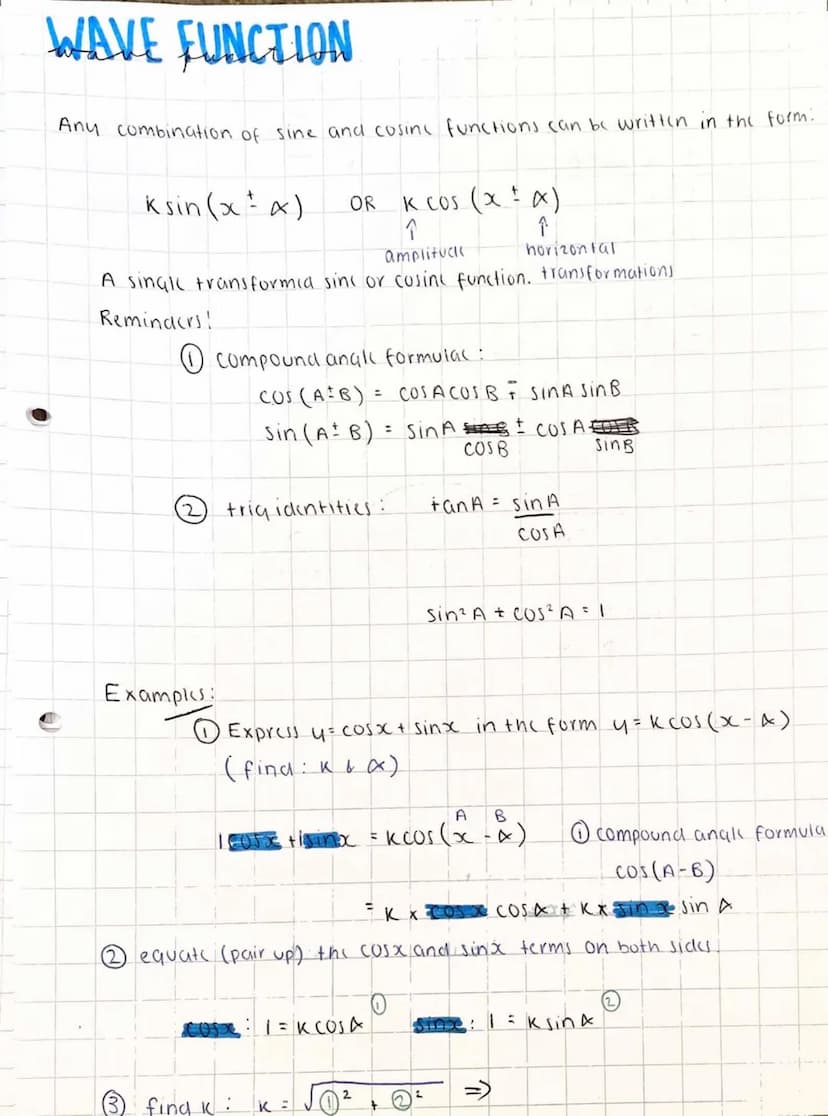 WAVE FUNCTION
wave function
Any combination of sine and cosine functions can be written in the form:
k sin(x ± α) OR k cos (x ± α)
↑ ↑
amplitude horizontal
A single transformed sine or cosine function. transformations
Reminders!
① compound angle formulae :
cos (A±B) = cosAcosB ∓ sinA sinB
sin (A± B) = sinA ± cosA
cosB sinB
② trig identities : tanA = sinA
cosA
sin²A + cos²A = 1
Examples:
① Express y=cosx + sinx in the form y= kcos(x-α)
(find: k & α)
A B
1cosx +1sinx = kcos(x - α) ① compound angle formula
cos(A-B)
= k x cosx cosα + k x sinx sin α
② equate (pair up) the cosx and sinx terms on both sides.
① ②
cosx : 1 = kcosα sinx : 1 = ksinα
③ find k : k = √①² + ②² ⇒